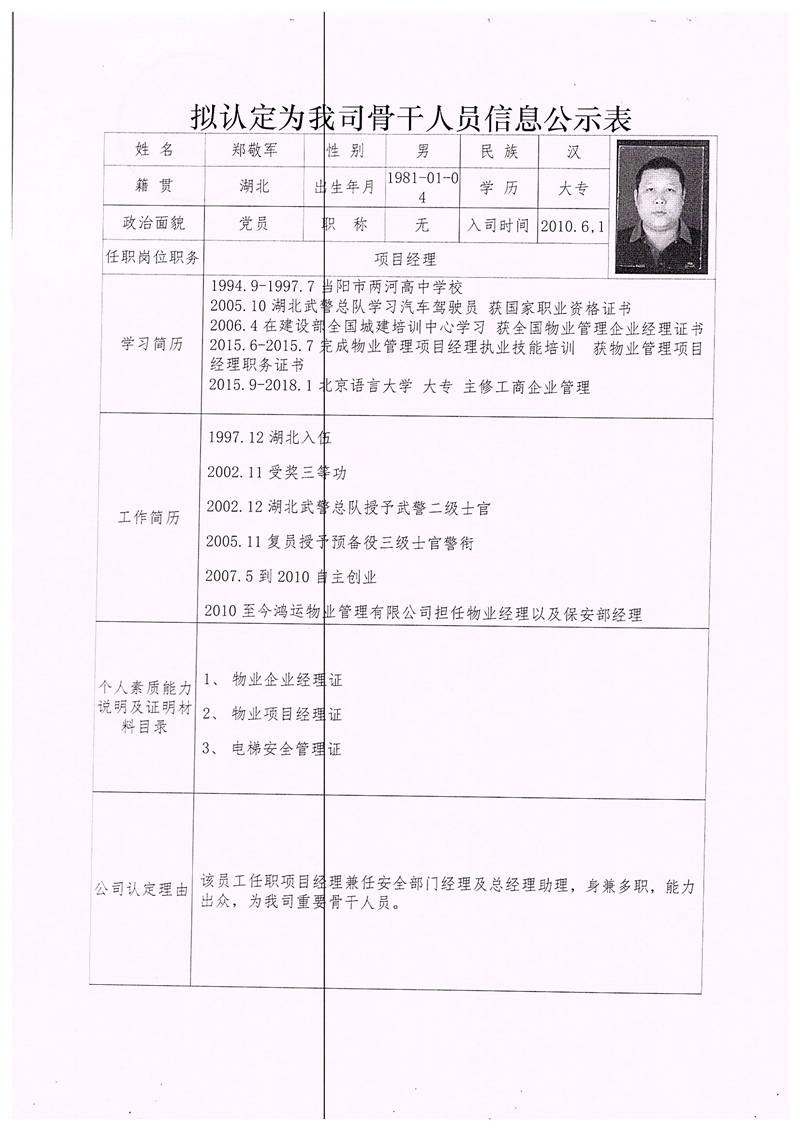 拟认定为我司骨干人员信息公示表
姓 名 郑敬军 性 别 男 民 族 汉
籍 贯 湖北 出生年月 1981-01-0
4 学 历 大专
政治面貌 党员 职 称 无 入司时间 2010.6,1
任职岗位职务 项目经理
学习简历
1994.9-1997.7 当阳市两河高中学校
2005.10 湖北武警总队学习汽车驾驶员 获国家职业资格证书
2006.4 在建设部全国城建培训中心学习 获全国物业管理企业经理证书
2015.6-2015.7 完成物业管理项目经理执业技能培训 获物业管理项目
经理职务证书
2015.9-2018.1 北京语言大学 大专 主修工商企业管理
工作简历
1997.12 湖北入伍
2002.11 受奖三等功
2002.12 湖北武警总队授予武警二级士官
2005.11 复员授予预备役三级士官警衔
2007.5 到 2010 自主创业
2010 至今鸿运物业管理有限公司担任物业经理以及保安部经理
个人素质能力
说明及证明材
料目录
1、 物业企业经理证
2、 物业项目经理证
3、 电梯安全管理证
公司认定理由
该员工任职项目经理兼任安全部门经理及总经理助理，身兼多职，能力
出众，为我司重要骨干人员。